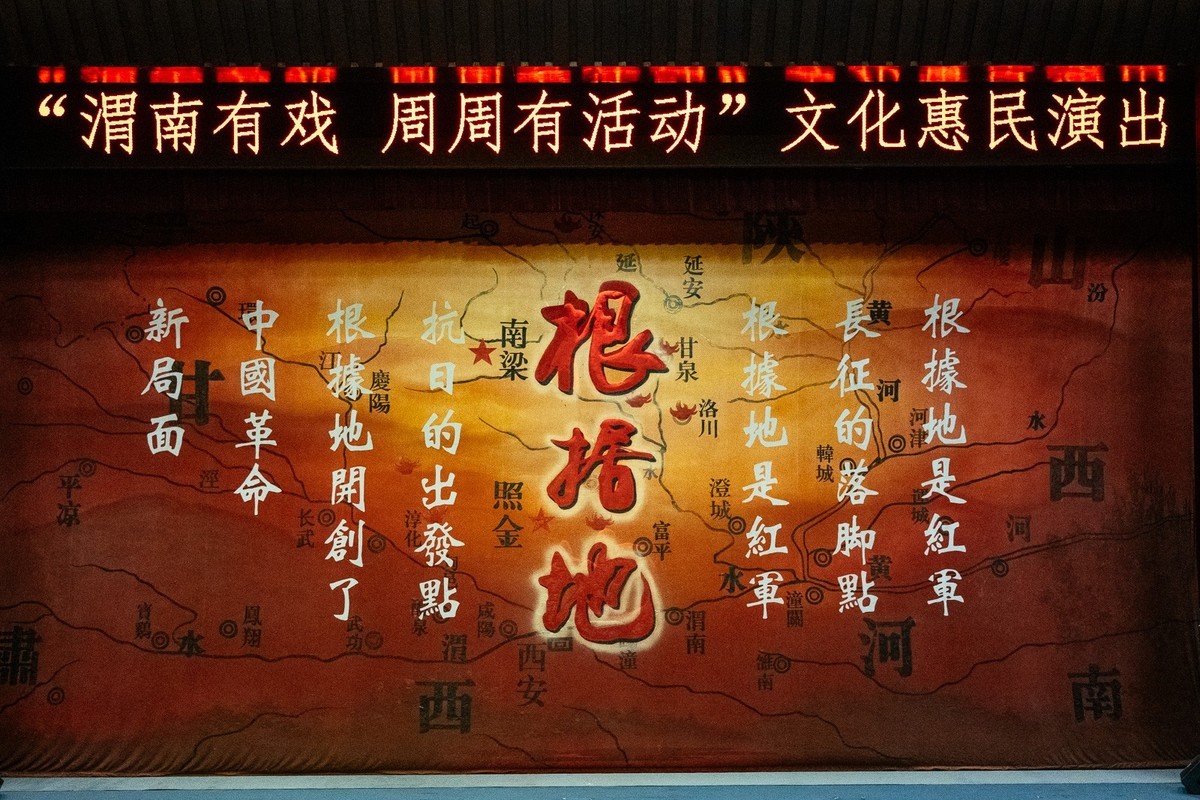 “渭南有戏 周周有活动”文化惠民演出
根據地是紅軍
長征的落脚點
根據地是紅軍
根据地
抗日的出發點
根據地開創了
中國革命
新局面
陕
山
西
河
南
甘
肅
西
延
延安
保安
南梁
甘泉
洛川
黄
河
汾
水
河津
韓城
澄城
河
黄
水
潼關
雒南
富平
渭南
照金
淳化
慶陽
環
江
涇
平凉
长武
寶鷄
水
鳳翔
武功
咸陽
渭
西安
潼
水